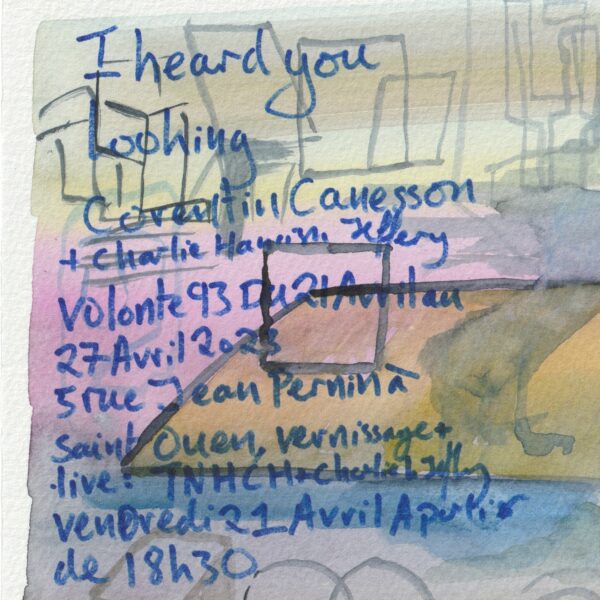 I heard you
Looking
Corentin Canesson
+ Charlie Hamish Jeffery
Volonte 93 Du 21 Avril au
27 Avril 2023
5 rue Jean Pernin à
Saint Ouen, vernissage +
live: TNHCH + Charlie h Jeffery
vendredi 21 Avril A partir
de 18h30